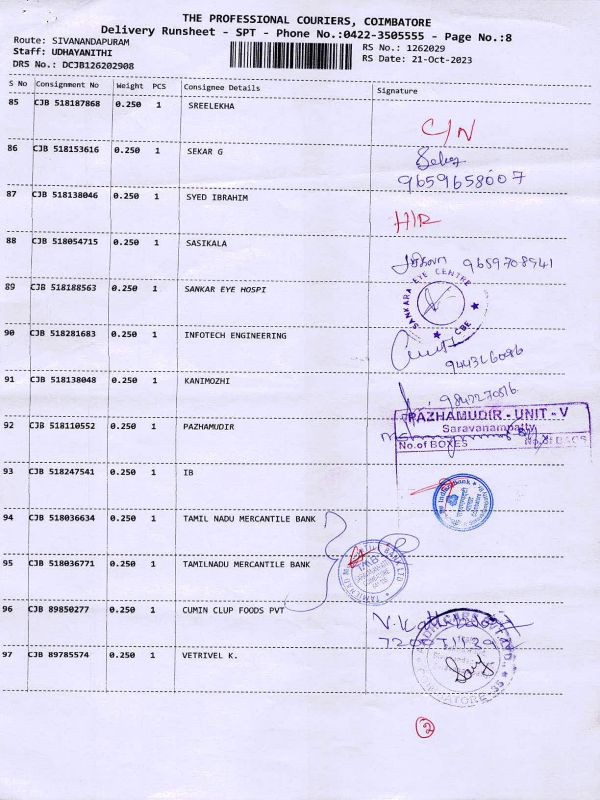 THE PROFESSIONAL COURIERS, COIMBATORE
Delivery Runsheet - SPT - Phone No.:0422-3505555 - Page No.:8
Route: SIVANANDAPURAM
Staff: UDHAYANITHI
RS No.: 1262029
DRS No.: DCJB126202908
RS Date: 21-Oct-2023
S No Consignment No Weight PCS Consignee Details Signature
85 CJB 518187868 0.250 1 SREELEKHA
C/N
86 CJB 518153616 0.250 1 SEKAR G
9659658007
87 CJB 518138046 0.250 1 SYED IBRAHIM
88 CJB 518054715 0.250 1 SASIKALA
9659708941
89 CJB 518188563 0.250 1 SANKAR EYE HOSPI
SANKARA EYE CENTRE
CBE
90 CJB 518281683 0.250 1 INFOTECH ENGINEERING
91 CJB 518138048 0.250 1 KANIMOZHI
92 CJB 518110552 0.250 1 PAZHAMUDIR
PAZHAMUDIR - UNIT - V
Saravanampatty
No.of BOXES No.of BAGS
93 CJB 518247541 1 IB
Indian Bank
94 CJB 518036634 0.250 1 TAMIL NADU MERCANTILE BANK
95 CJB 518036771 0.250 1 TAMILNADU MERCANTILE BANK
96 CJB 89850277 0.250 1 CUMIN CLUP FOODS PVT
97 CJB 89785574 0.250 1 VETRIVEL K.
2